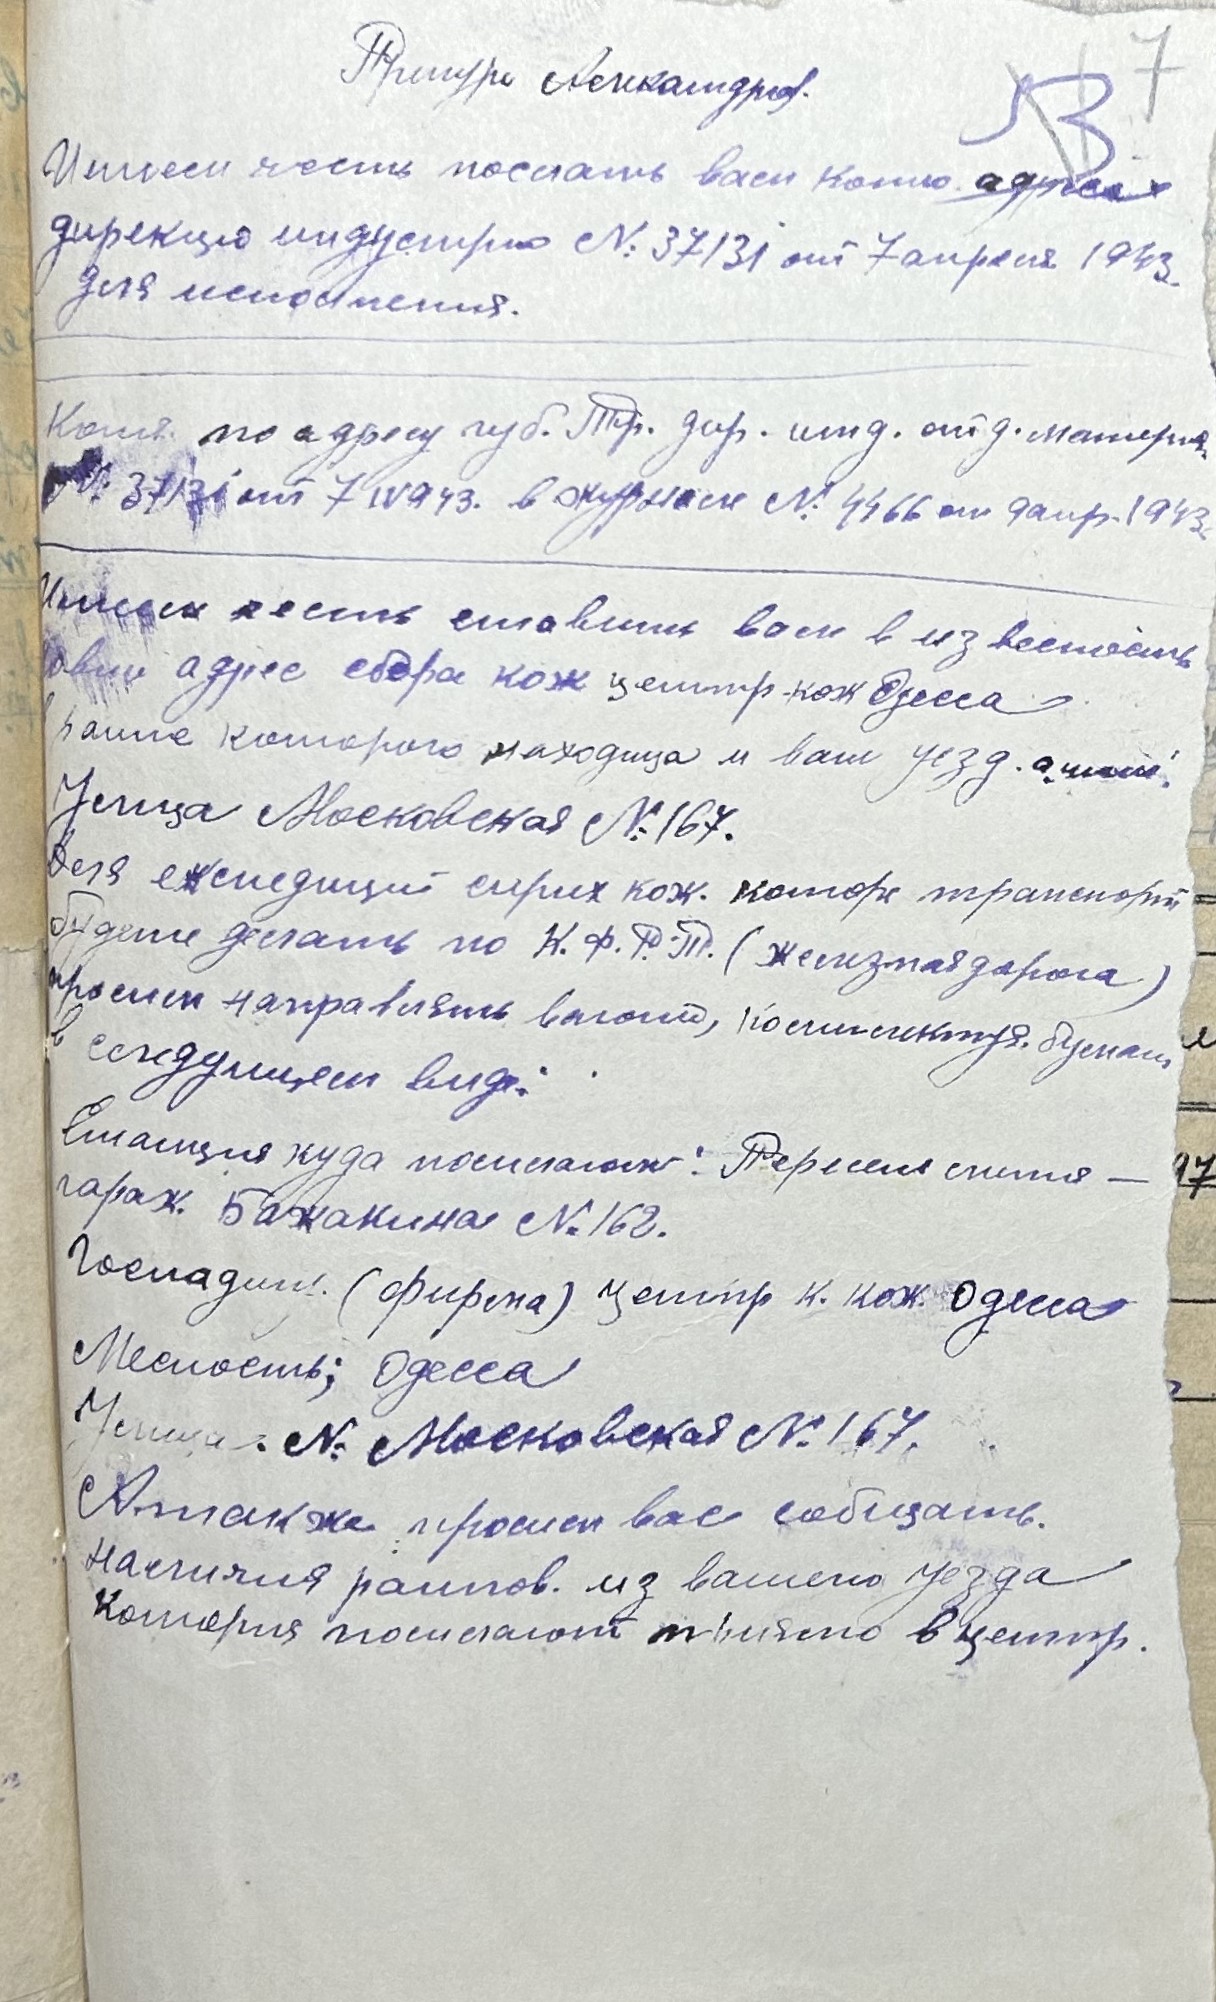 7
Претура Александров.
Имеем честь послать вам копию адреса
дирекцию индустрию №. 37131 от 7 апреля 1943.
для исполнения.
Копия. по адресу губ. Тр. дир. инд. отд. материя.
№. 37131 от 7 IV 943. в журнале №. 4466 от 9 апр. 1943.
Имеем честь ставить вам в известность
адрес сбора кож центр-кож Одесса
которого находица и ваш уезд.
Улица Московская №. 167.
для експедиций сирих кож. которе транспорт
будете делать по К. Ф. Р. Т. (железная дорога)
просим направлять вагоны,
в следующем виде:
Станция куда посилают: –
гараж. №. 162.
Господин. (фирма) центр к. кож. Одесса
Месность; Одесса
Улица. №. Московская №. 167.
А также просим вас собщать.
наличия из вашего уезда
котория посилают прямо в центр.